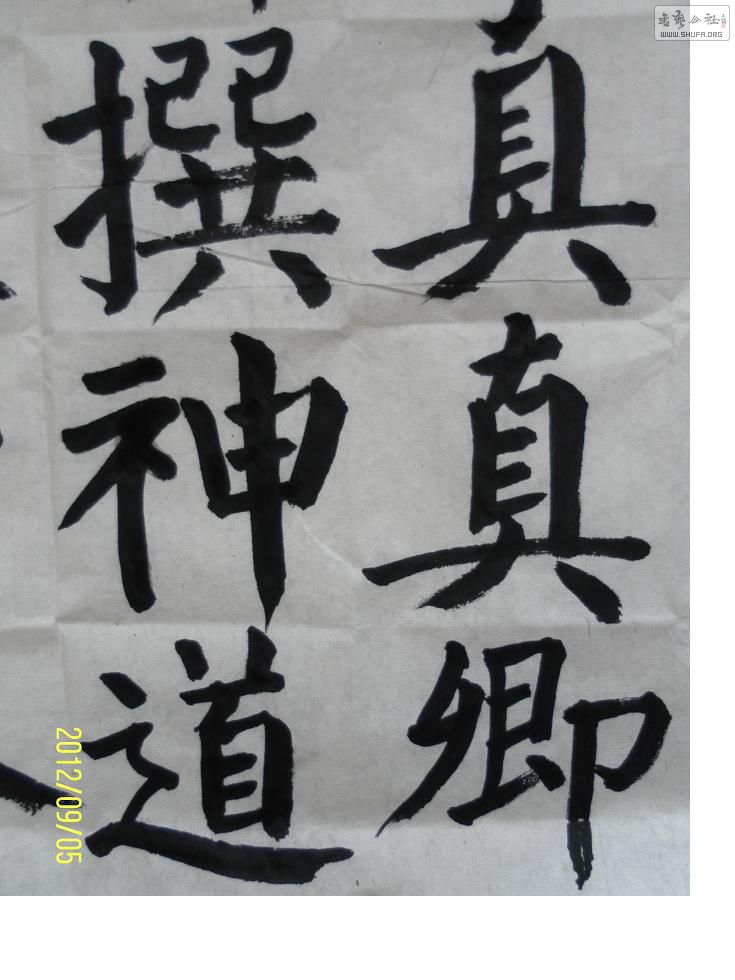 真真卿
撰神道
2012/09/05
书艺公社
WWW.SHUFA.ORG